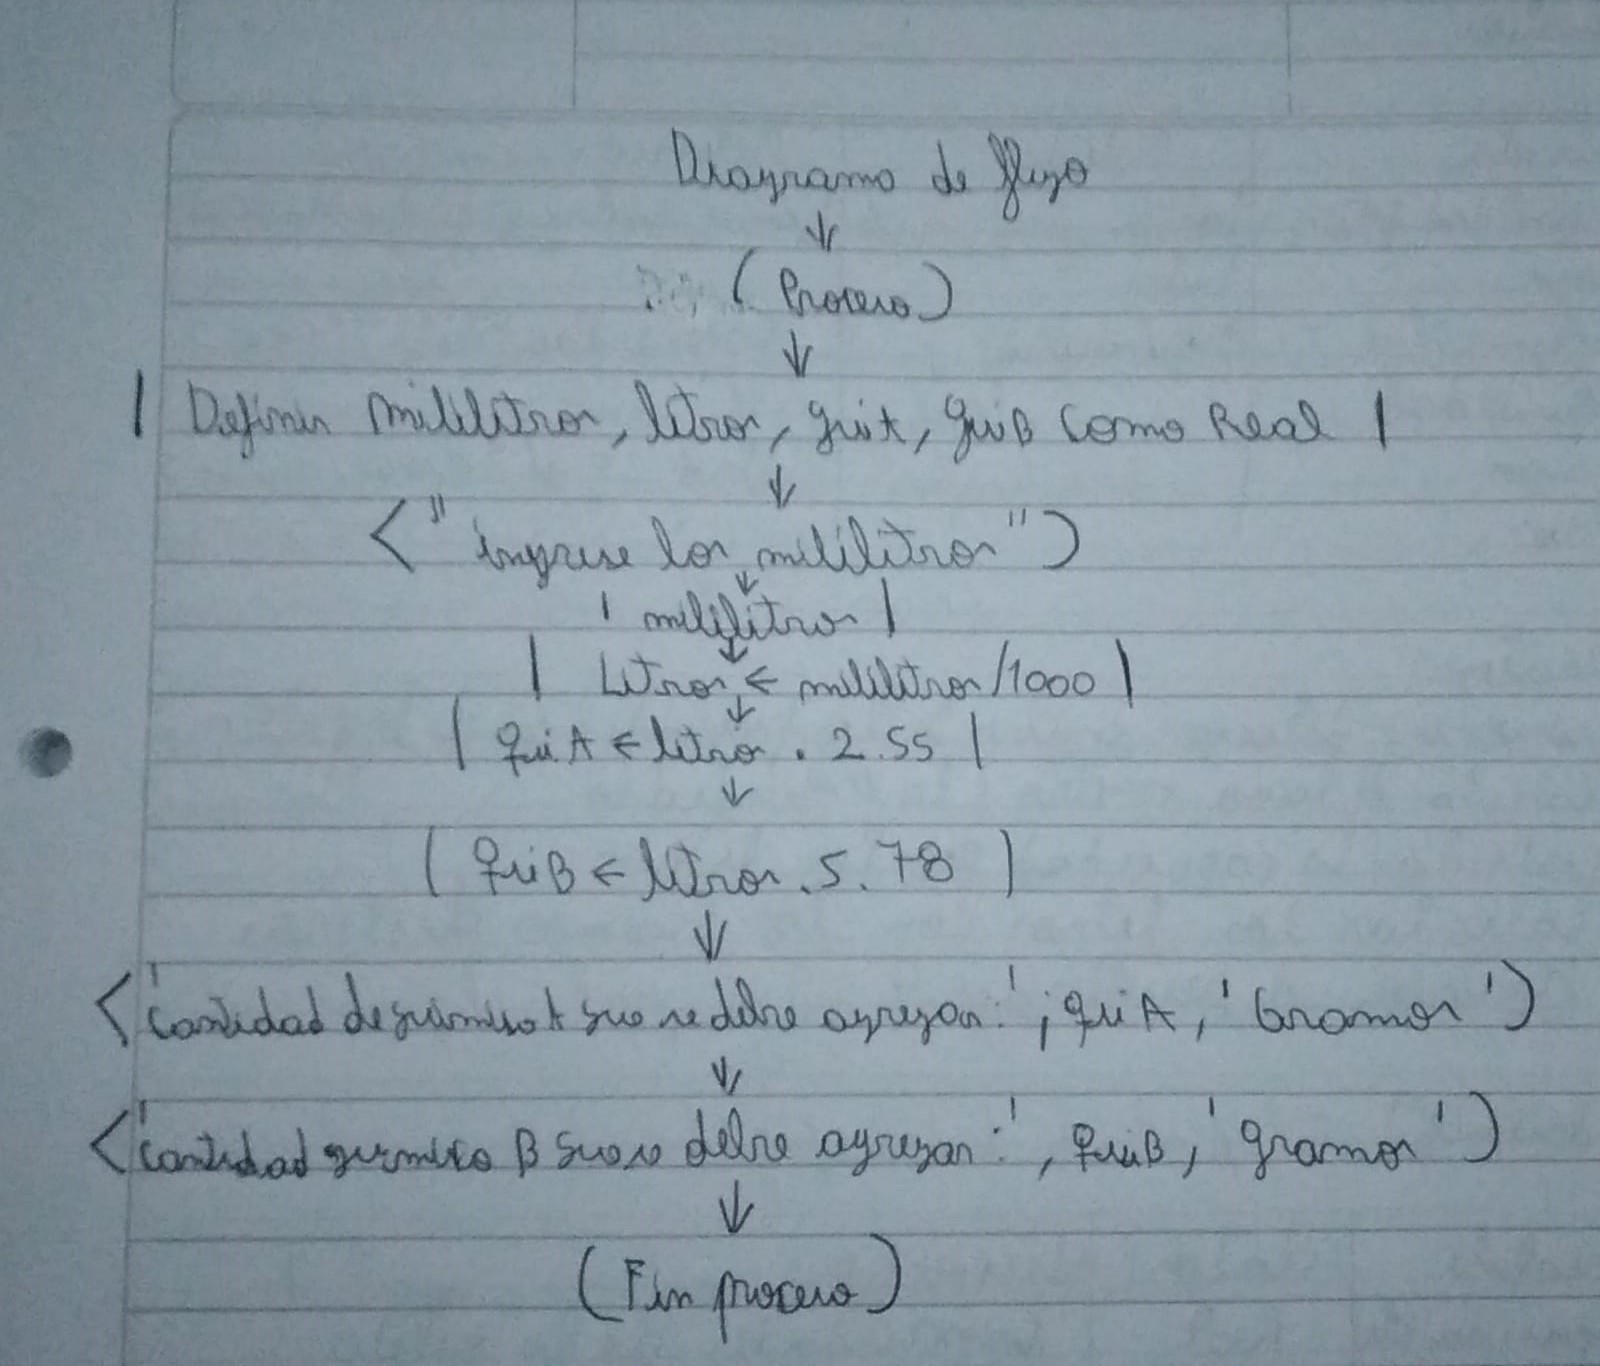 Diagrama de flujo
(Proceso)
| Definir mililitros, litros, quiA, quiB como Real |
<" ingrese los mililitros ")
| mililitros |
| Litros ← mililitros/1000 |
| quiA ← litros . 2.55 |
( quiB ← litros . 5.78 )
<'Cantidad de quimico A que se debe agregar:', quiA, 'Gramos')
<'Cantidad quimico B que se debe agregar:', quiB, 'gramos')
(Fin proceso)